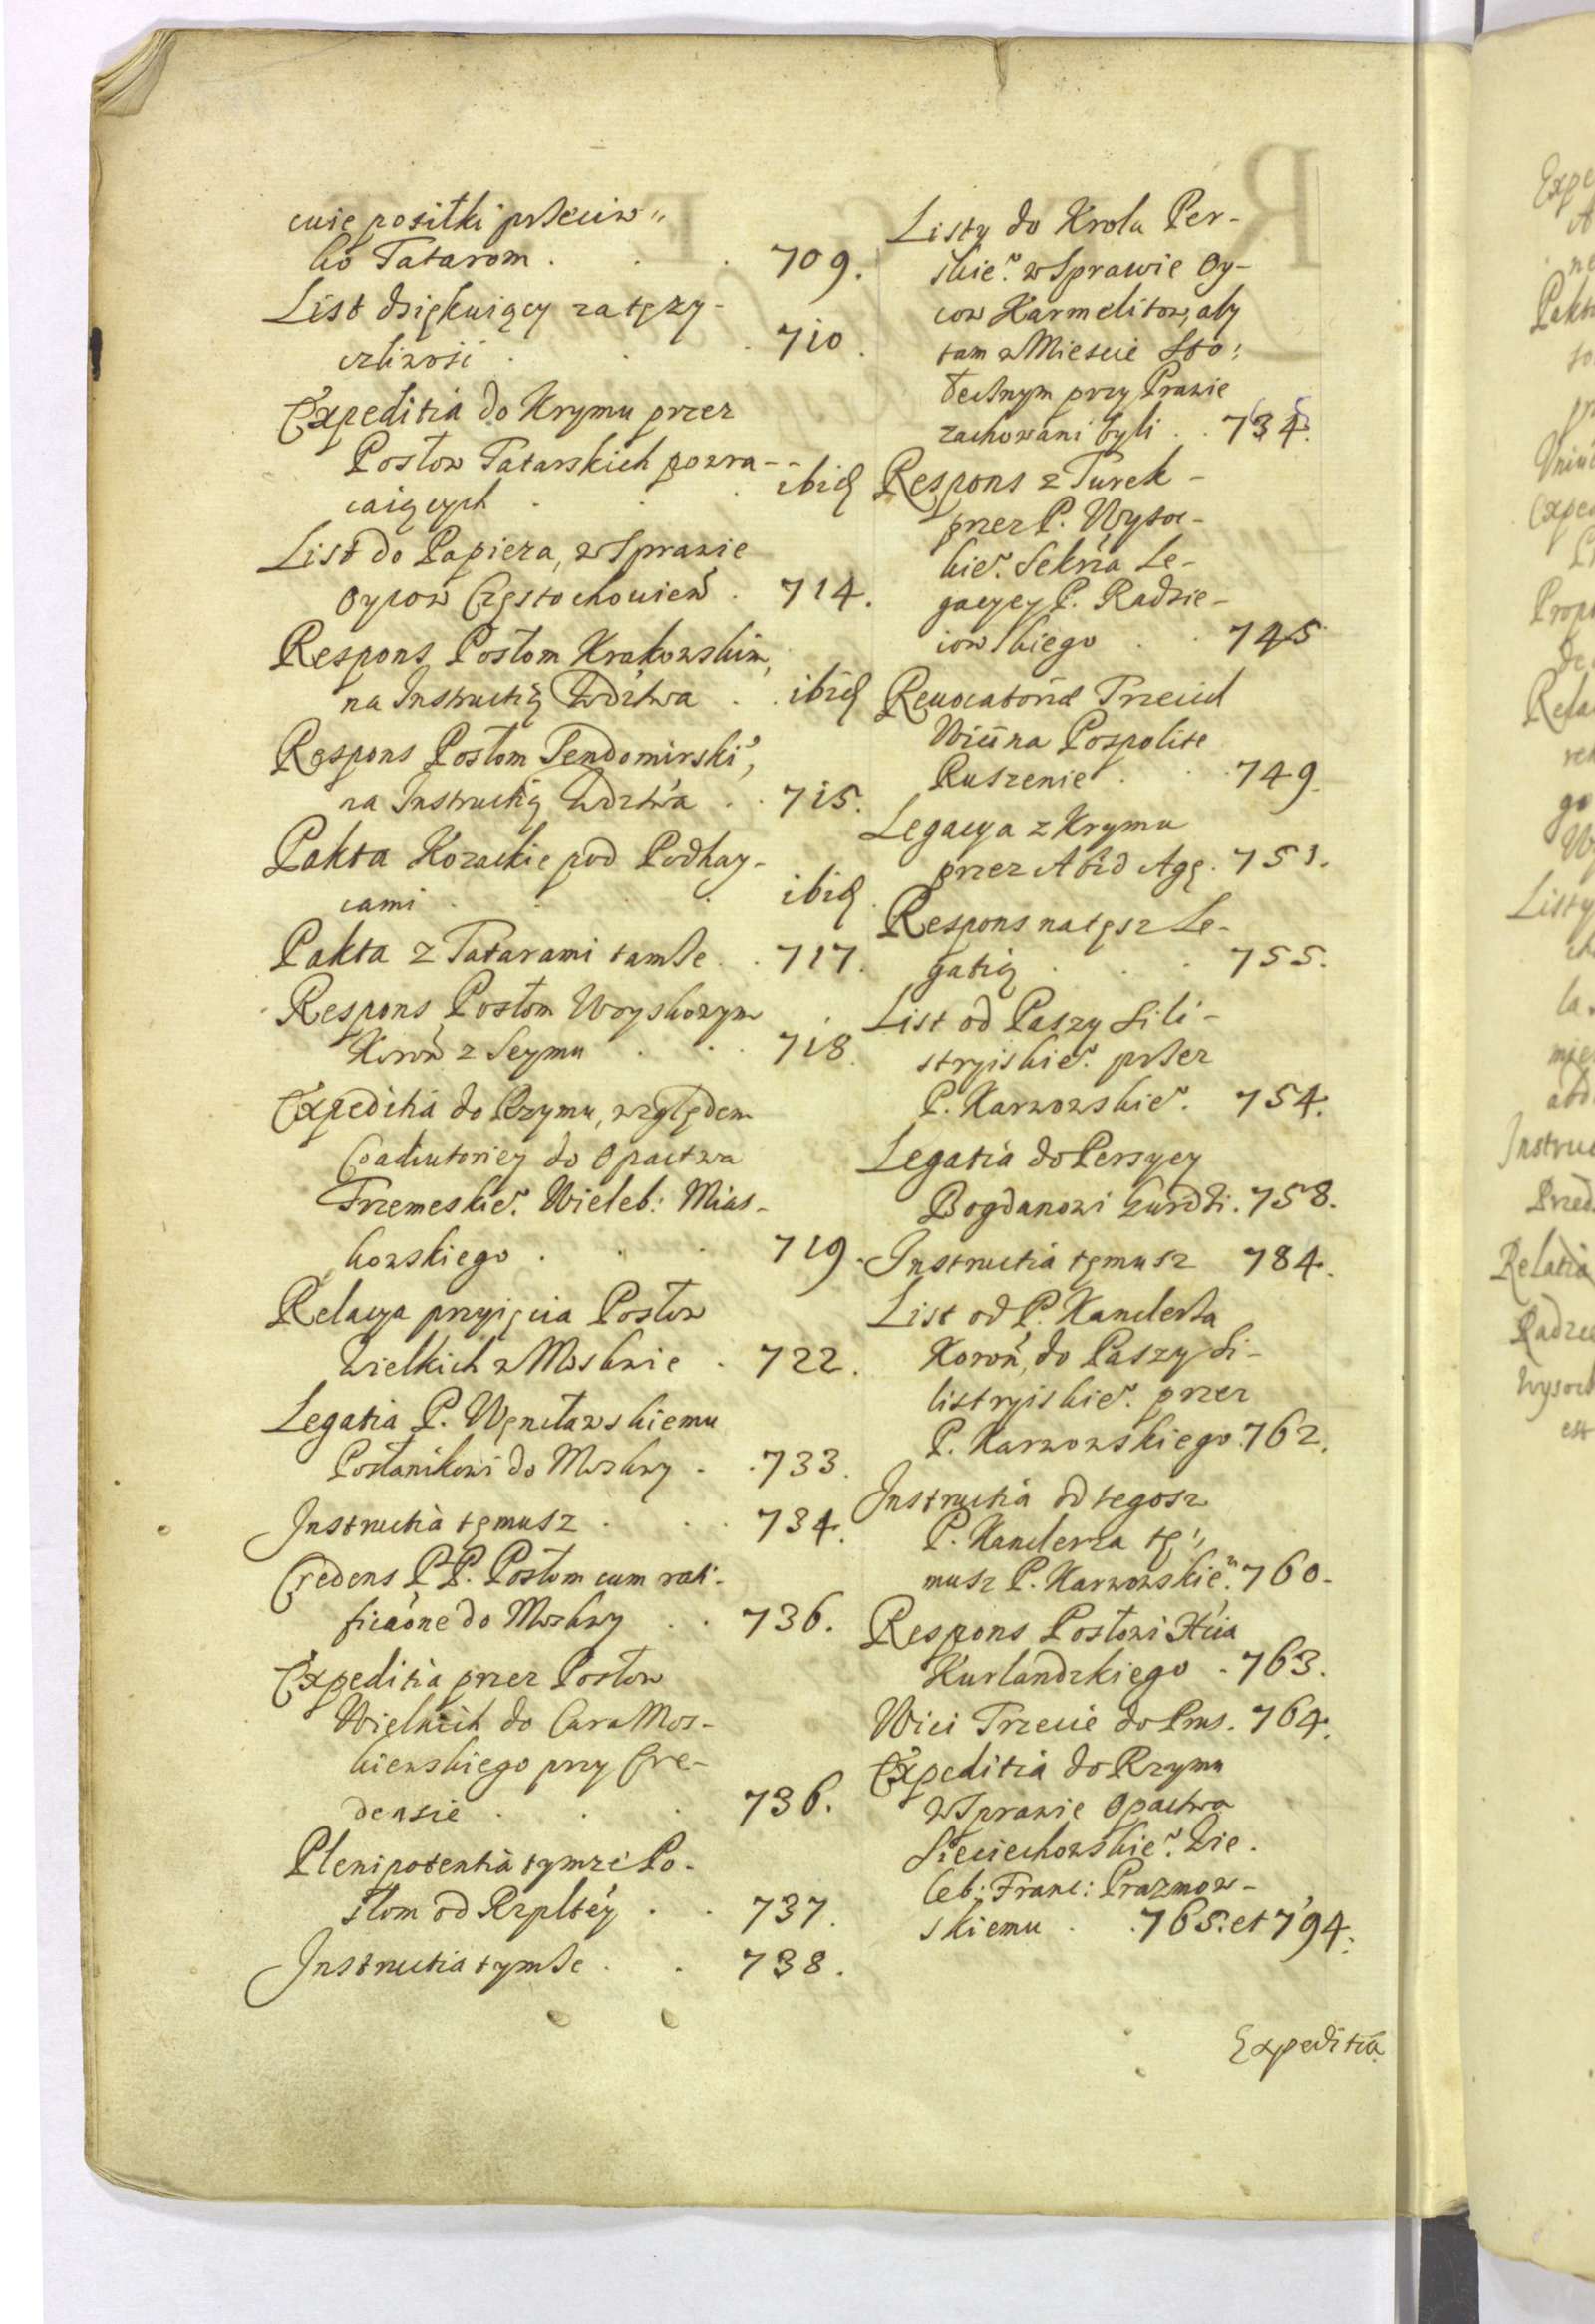 cuie posiłki przeciw„
ko Tatarom . . . 709.
List dziękuiący za tęży-
czliwosi . . . 710.
Expeditia do Krymu przez
Posłow Tatarskich powra-
caiących . . ibid
List do Papieza, w Sprawie
Oycow Częstochowień . 714.
Respons Posłom Krakowskim,
na Instructią Wdztwa . . ibid
Respons Posłom Sendomirski,
na Instructią Wdztwa . . 715.
Pakta Kozackie pod Podhay-
cami . . . ibid.
Pakta z Tatarami tamże . . 717.
Respons Posłom Woyskowym
Koroń z Seymu . . . 718.
Expeditia do Rzymu, względem
Coadiutoriey do Opactwa
Trzemeskie. Wieleb: Mias-
kowskiego . . . 719.
Relacya przyięcia Posłow
Wielkich w Moskwie . 722.
Legatia P. Węncławskiemu
Posłanikowi do Moskwy . . 733.
Instructia tęmusz . . . 734.
Credens P.P. Posłom cum rati-
ficaóne do Moskwy . . 736.
Expeditia przez Posłow
Wielkich do Cara Mos-
kiewskiego przy Cre-
densie . . . 736.
Plenipotentia tymże Po-
słom od Rzpltéy . . 737.
Instructia tymże . . 738.
Listy do Krola Per-
skie. w Sprawie Oy-
cow Karmelitow, aby
tam w Miescie Sto:
łecznym przy Prawie
zachowani byli . . 734.
Respons z Turek-
przez P. Wysoc-
kie. Sekrża Le-
gacyey P. Radzie-
iowskiego . . 745
Reuocatoriæ Trzecich
Wići na Pospolite
Ruszenie . . . 749.
Legacya z Krymu
przez Abid Agę. 751.
Respons na tęsz Le-
gatią . . . 755.
List od Paszy Sili-
stryiskie. przez
P. Karwowskie. 754.
Legatia do Persyey
Bogdanowi Gurdzi. 758.
Instructia tęmusz 784.
List od P. Kanclerza
Koroń, do Paszy Si-
listryiskie. przez
P. Karwowskiego. 762.
Instructia od tegosz
P. Kanclerza tę:
musz P. Karwowskie. 760.
Respons Posłowi Xcia
Kurlandzkiego . 763.
Wici Trzecie do Prus. 764.
Expeditia do Rzymu
w Sprawie Opactwa
Sieciechowskie. Wie.
leb: Franc: Prazmow-
skiemu . . 765. et 794.
Expeditia